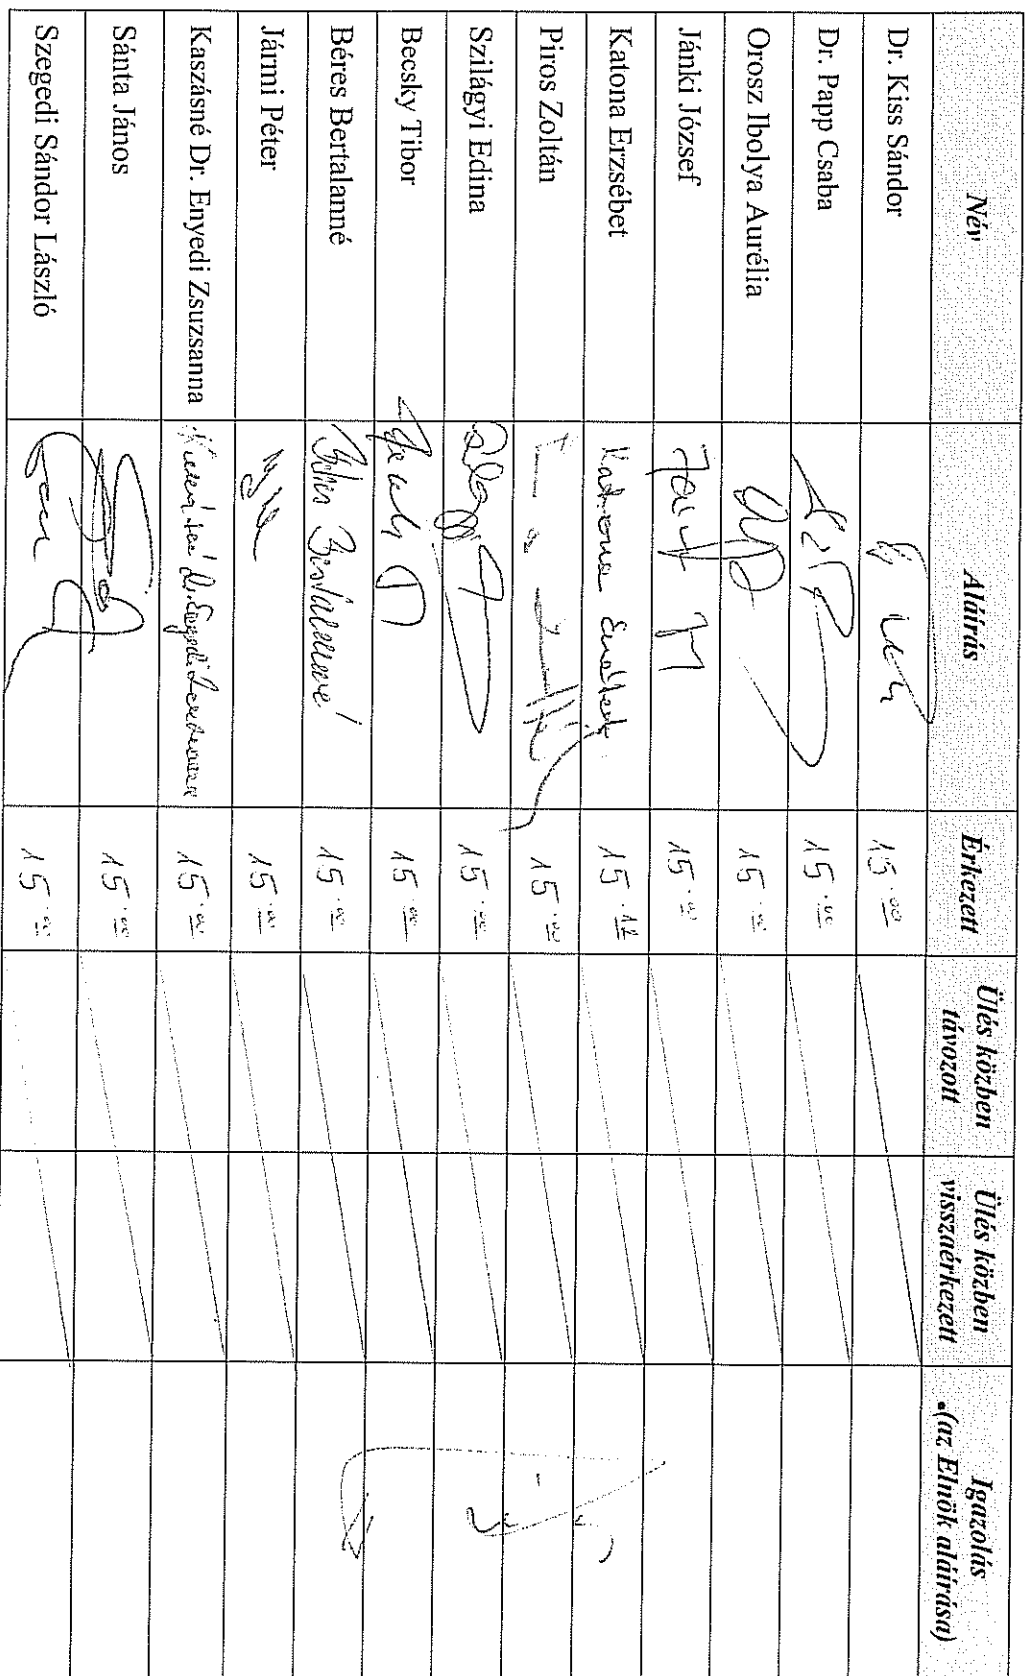 Név Aláírás Érkezett Ülés közben távozott Ülés közben visszaérkezett Igazolás (az Elnök aláírása)
Dr. Kiss Sándor 15.00
Dr. Papp Csaba 15.00
Orosz Ibolya Aurélia 15.00
Jánki József 15.00
Katona Erzsébet Katona Erzsébet 15.12
Piros Zoltán 15.00
Szilágyi Edina 15.00
Becsky Tibor 15.00
Béres Bertalanné Béres Bertalanné 15.00
Jármi Péter 15.00
Kaszásné Dr. Enyedi Zsuzsanna 15.00
Sánta János 15.00
Szegedi Sándor László 15.00